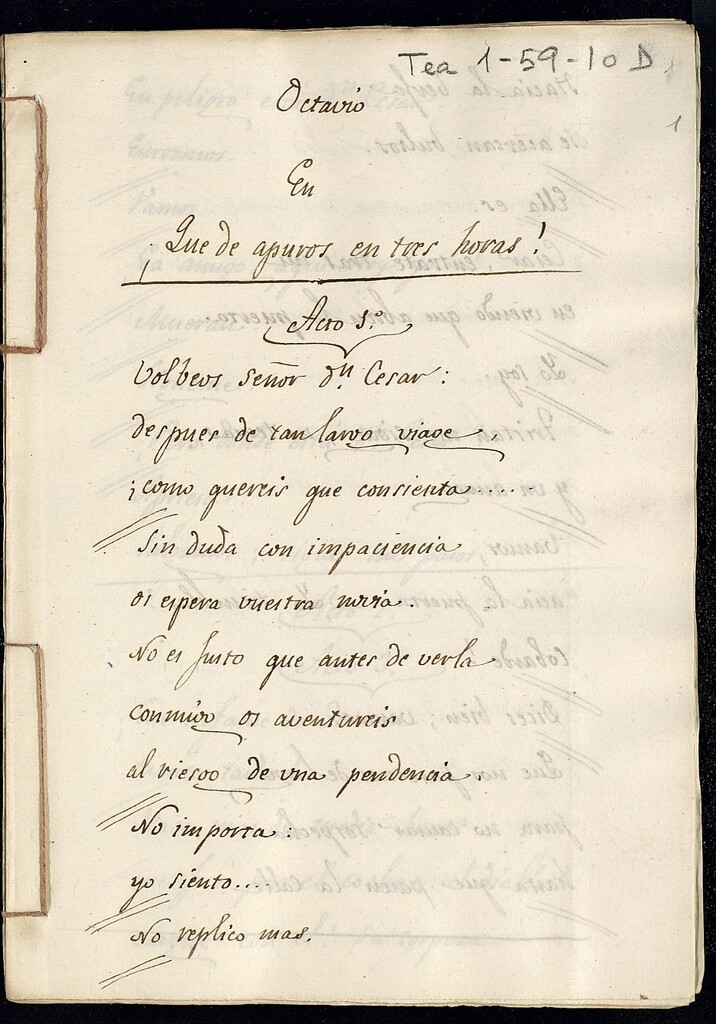 Tea 1-59-10 D
1
Octavio
En
¡Que de apuros en tres horas!
Acto 1.º
Volbeos señor dn Cesar:
despues de tan largo viage,
¡como quereis que consienta....
Sin duda con impaciencia
os espera vuestra novia.
No es justo que antes de verla
conmigo os aventureis
al riesgo de una pendencia.
No importa:
yo siento....
No replico mas.